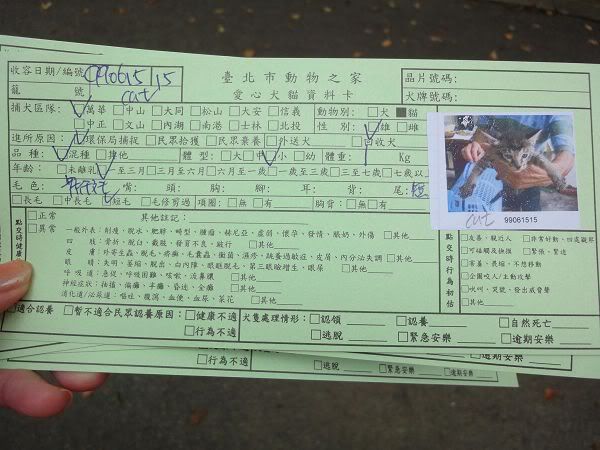 收容日期/編號 990615/15
臺北市動物之家
晶片號碼:
籠 號 cat
愛心犬貓資料卡
犬牌號碼:
捕犬區隊: ☑萬華 □中山 □大同 □松山 □大安 □信義 動物別: □犬 ■貓
□中正 □文山 □內湖 □南港 □士林 □北投 性 別: ☑雄 □雌
進所原因: ☑環保局捕捉 □民眾拾獲 □民眾棄養 □外送犬 □回收犬
品 種: ☑混種 □其他 體 型: □大 □中 ☑小 □幼 體重: Kg
年齡: □未離乳 ☑一至三月 □三月至六月 □六月至一歲 □一歲至三歲 □三至七歲 □七歲以上
毛 色: 嘴: 頭: 胸: 腳: 耳: 背: 尾:
□長毛 □中長毛 ☑短毛 □毛修剪過 項圈: □無 □有 胸背: □無 □有
cat 99061515
點交時健康
□正常
□異常
其他註記:
一般外表: 削瘦、脫水、肥胖、畸型、腫瘤、赫尼亞、虛弱、懷孕、發情、脹奶、外傷
四 肢: 骨折、脫臼、截肢、發育不良、跛行 □其他
皮 膚: 外寄生蟲、脫毛、疥癬、毛囊蟲、黴菌、濕疹、跳蚤過敏症、皮屑、內分泌失調 □其他
眼 睛: 失明、萎縮、脫出、白內障、眼瞼脫毛、第三眼瞼增生、眼屎 □其他
呼 吸 道: 急促、呼吸困難、咳嗽、流鼻膿 □其他
神經症狀: 抽搐、偏癱、半癱、昏迷、全癱 □其他
消化道/泌尿道: 嘔吐、腹瀉、血便、血尿、菜花 □其他
點交時行為初估
□友善、親近人 □非常好動、四處觀察
□可碰觸及撫摸 □緊張、緊迫
□害羞、畏縮、不想移動
□企圖咬人/主動攻擊
□吠叫、哭號、發出威脅聲
□其他
□適合認養 □暫不適合民眾認養原因: □健康不適 犬隻處理情形: □認領 □認養 □自然死亡
□行為不適 □逃脫 □緊急安樂 □逾期安樂
□行為不適 □逃脫 □緊急安樂 □逾期安樂